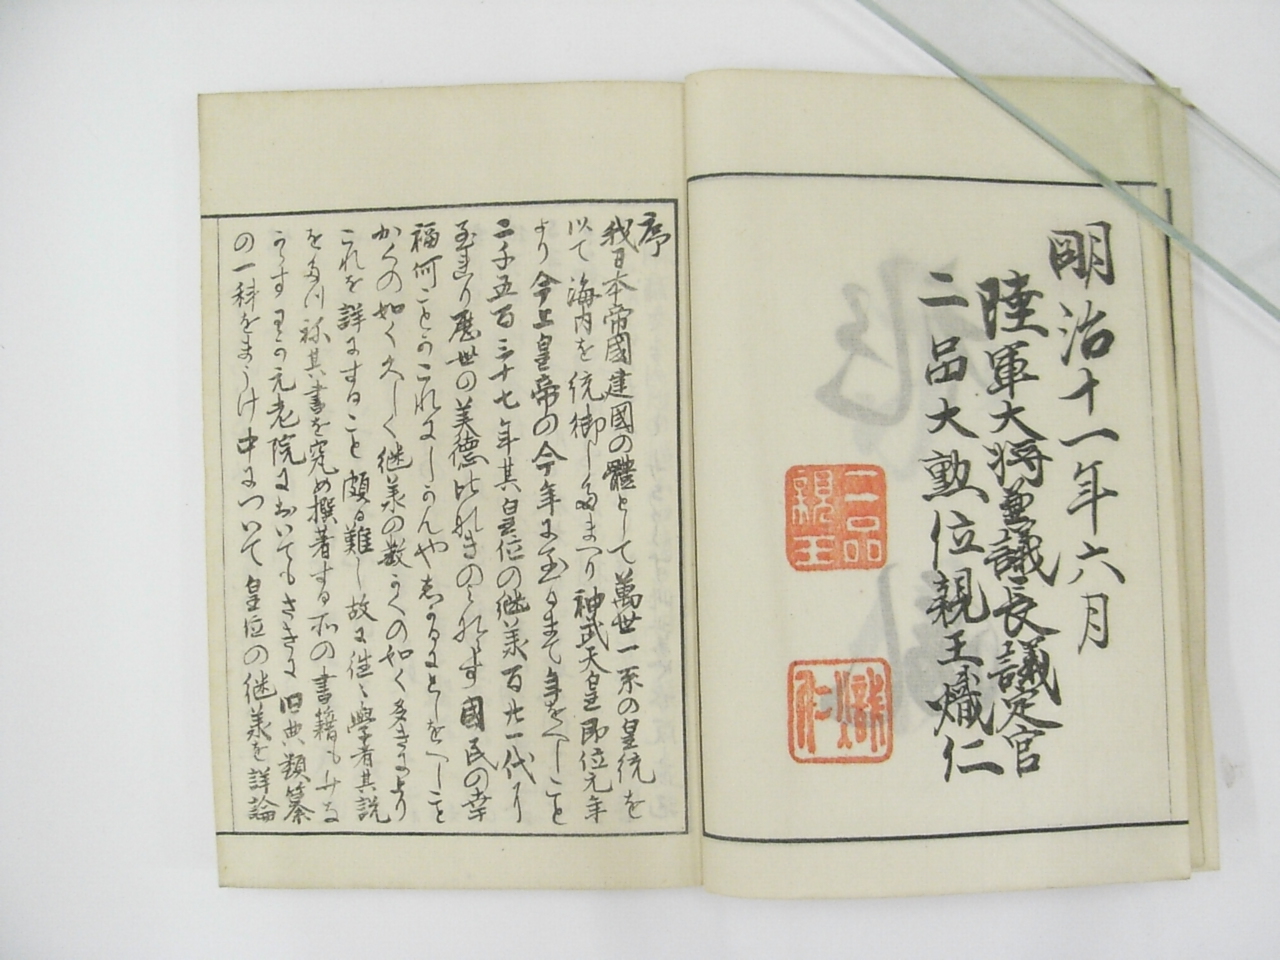 明治十一年六月
陸軍大将兼議長議定官
二品大勲位親王熾仁
二品親王
熾仁
序
我日本帝國建國の體として萬世一系の皇統を
以て海内を統御したまへり神武天皇即位元年
より今上皇帝の今年に至るまて年をへしこと
二千五百三十七年其皇位の継承百廿一代に
至れり歴世の美徳比ひなきのみならす國民の幸
福何ことかこれにしかんやしかるにとしをへしこと
かくの如く久しく継承の数かくの如く多きにより
これを詳にすること頗る難し故に往々學者其説
を其書を究め撰著する所の書籍も
わか元老院においてもさきに旧典類纂
の一科をまうけ中について皇位の継承を詳論